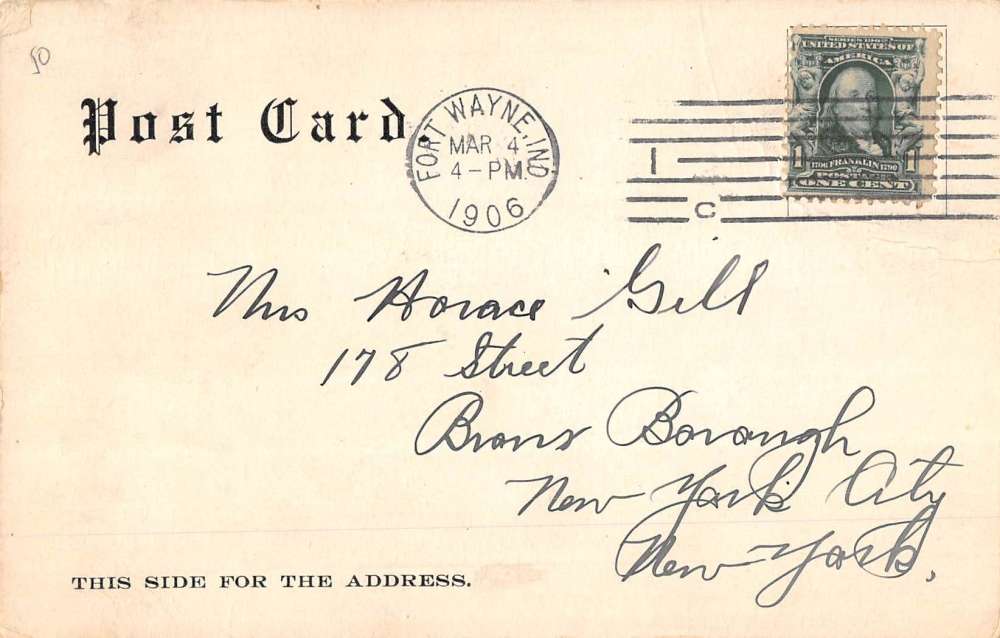 50
Post Card
FORT WAYNE, IND.
MAR 4
4-PM
1906
1
C
SERIES 1902
UNITED STATES OF
AMERICA
1 1706 FRANKLIN 1790 1
POSTAGE
ONE CENT
Mrs Horace Gill
178 Street
Bronx Borough
New York City
New York.
THIS SIDE FOR THE ADDRESS.